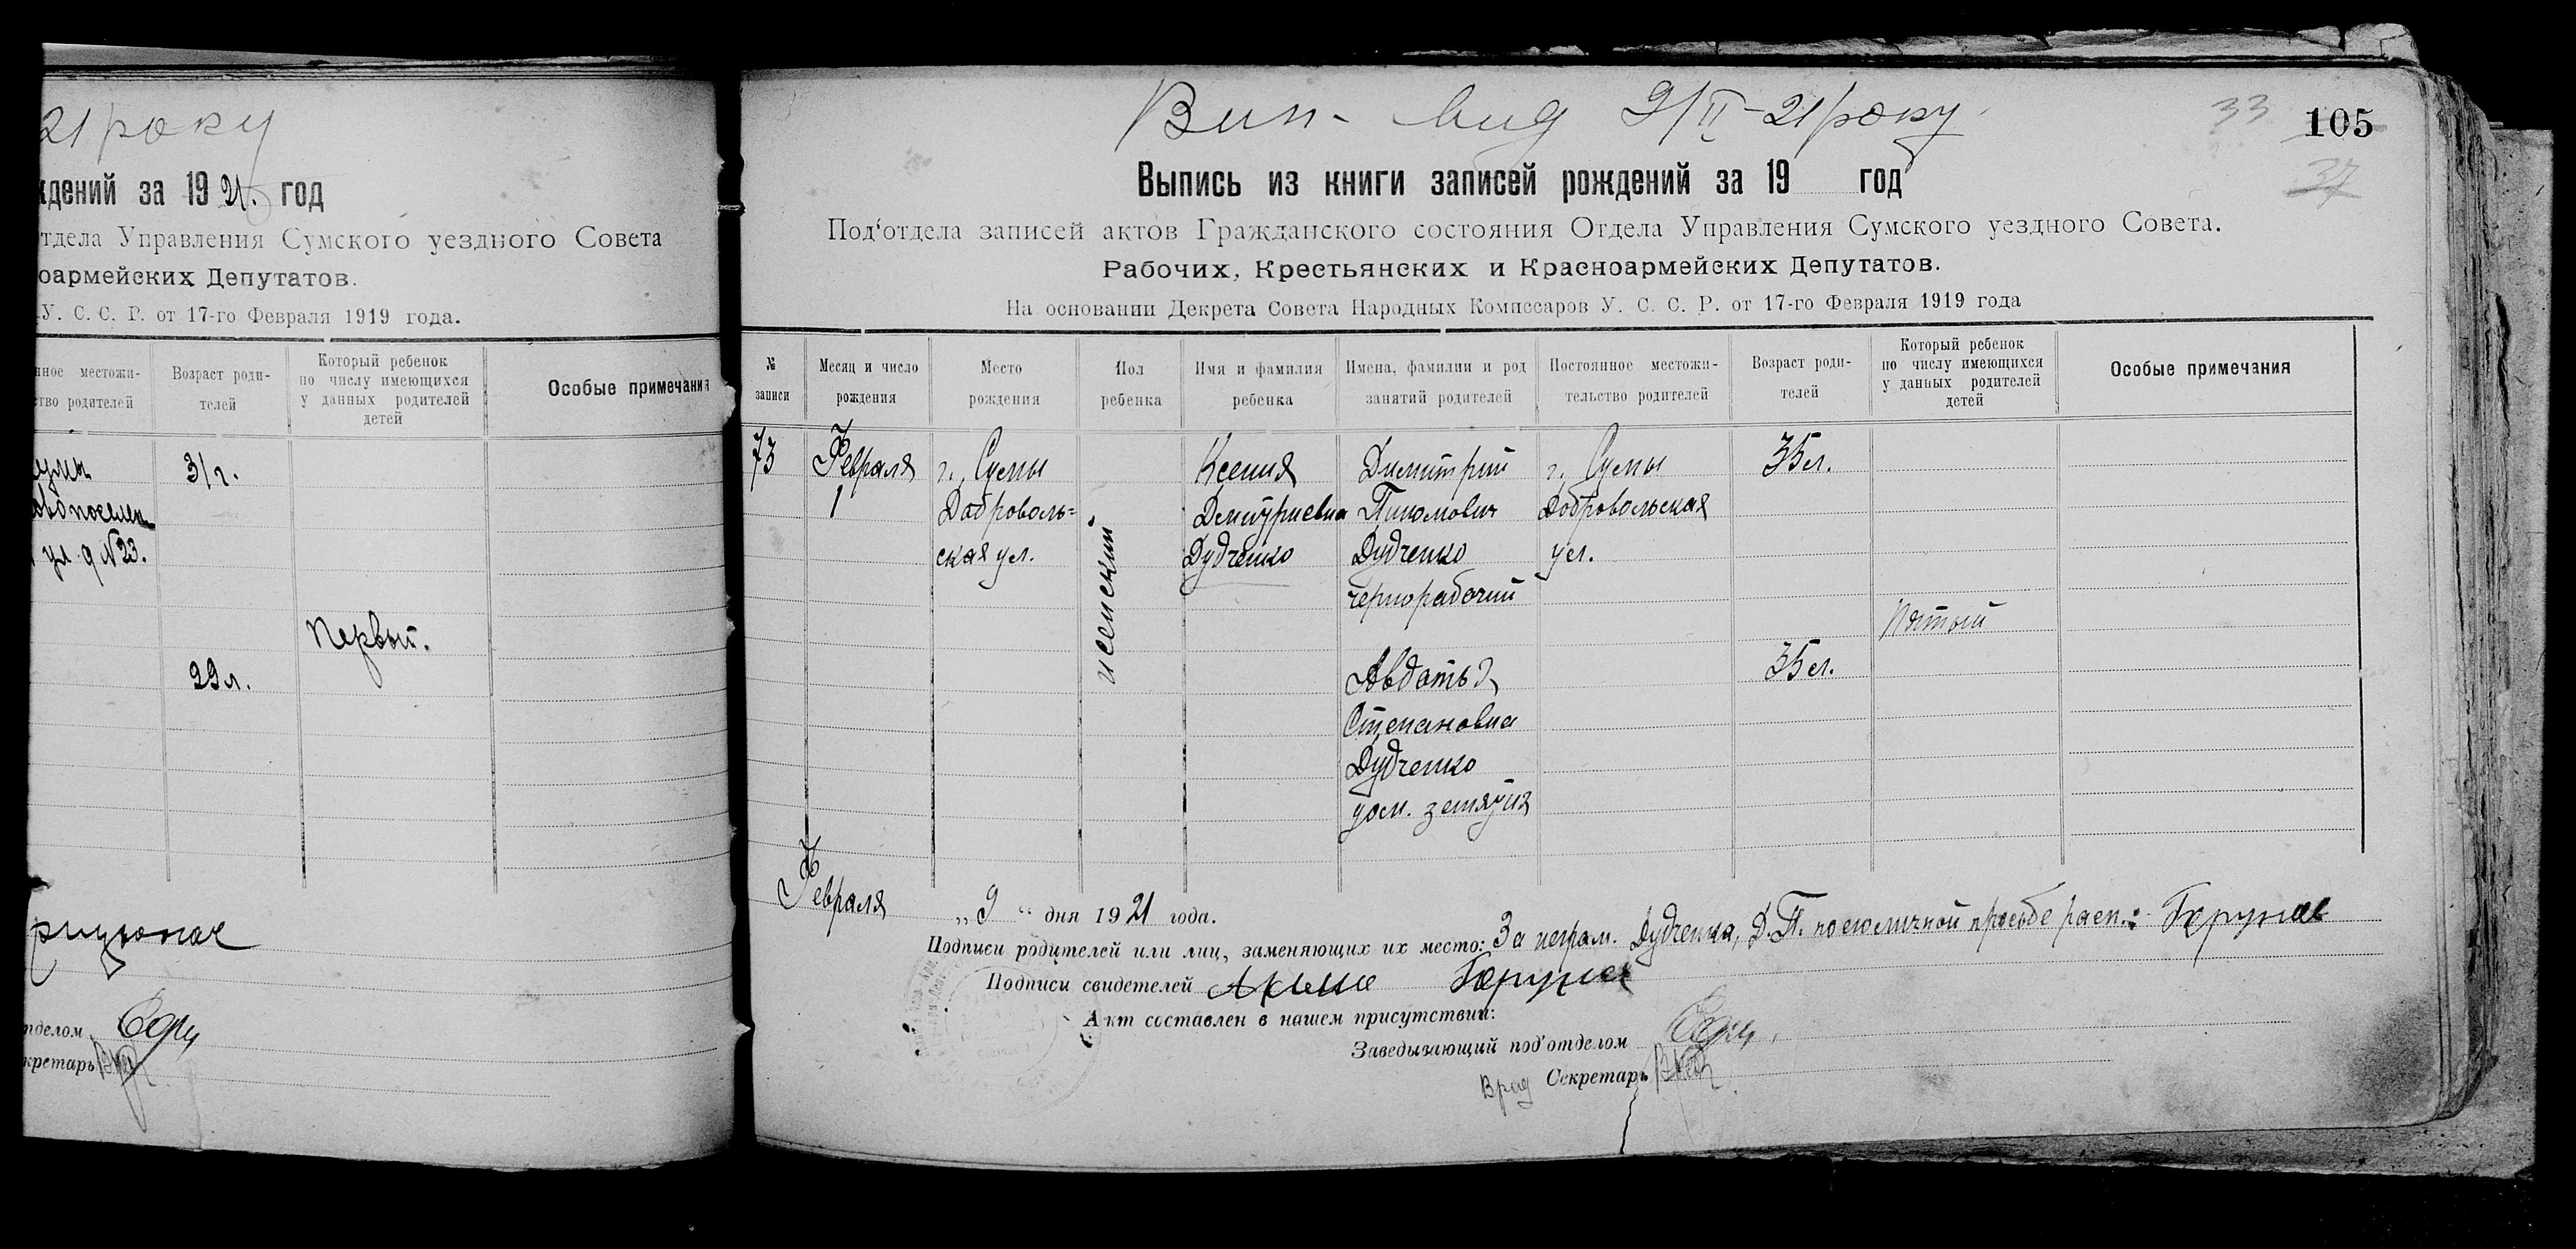 21 року
ждений за 1921. год
тдела Управления Сумского уездного Совета
оармейских Депутатов.
У. С. С. Р. от 17-го Февраля 1919 года.
ное местожи-
ство родителей
Возраст роди-
телей
Который ребенок
по числу имеющихся
у данных родителей
детей
Особые примечания
31 г.
ул д N 23.
Первый.
22 л.
тделом
кретарь
Вип- вид 9/II-21 року
33 105
37
Выпись из книги записей рождений за 19 год
Под'отдела записей актов Гражданского состояния Отдела Управления Сумского уездного Совета.
Рабочих, Крестьянских и Красноармейских Депутатов.
На основании Декрета Совета Народных Комиссаров У. С. С. Р. от 17-го Февраля 1919 года
№
записи
Месяц и число
рождения
Место
рождения
Пол
ребенка
Имя и фамилия
ребенка
Имена, фамилии и род
занятий родителей
Постоянное местожи-
тельство родителей
Возраст роди-
телей
Который ребенок
по числу имеющихся
у данных родителей
детей
Особые примечания
73
Февраля
1
г. Сумы
Доброволь=
ская ул.
женский
Ксения
Дмитриевна
Дудченко
Димитрий
Пимович
Дудченко
чернорабочий
Авдотья
Степановна
Дудченко
дом. хозяйка
г. Сумы
Добровольская
ул.
35 л.
35 л.
Пятый
Февраля „9“ дня 1921 года.
Подписи родителей или лиц, заменяющих их место: За неграм. Дудченка, Д.П. по его личной просьбе расп.:
Подписи свидетелей
Акт составлен в нашем присутствии:
Заведывающий под'отделом
Врид Секретарь